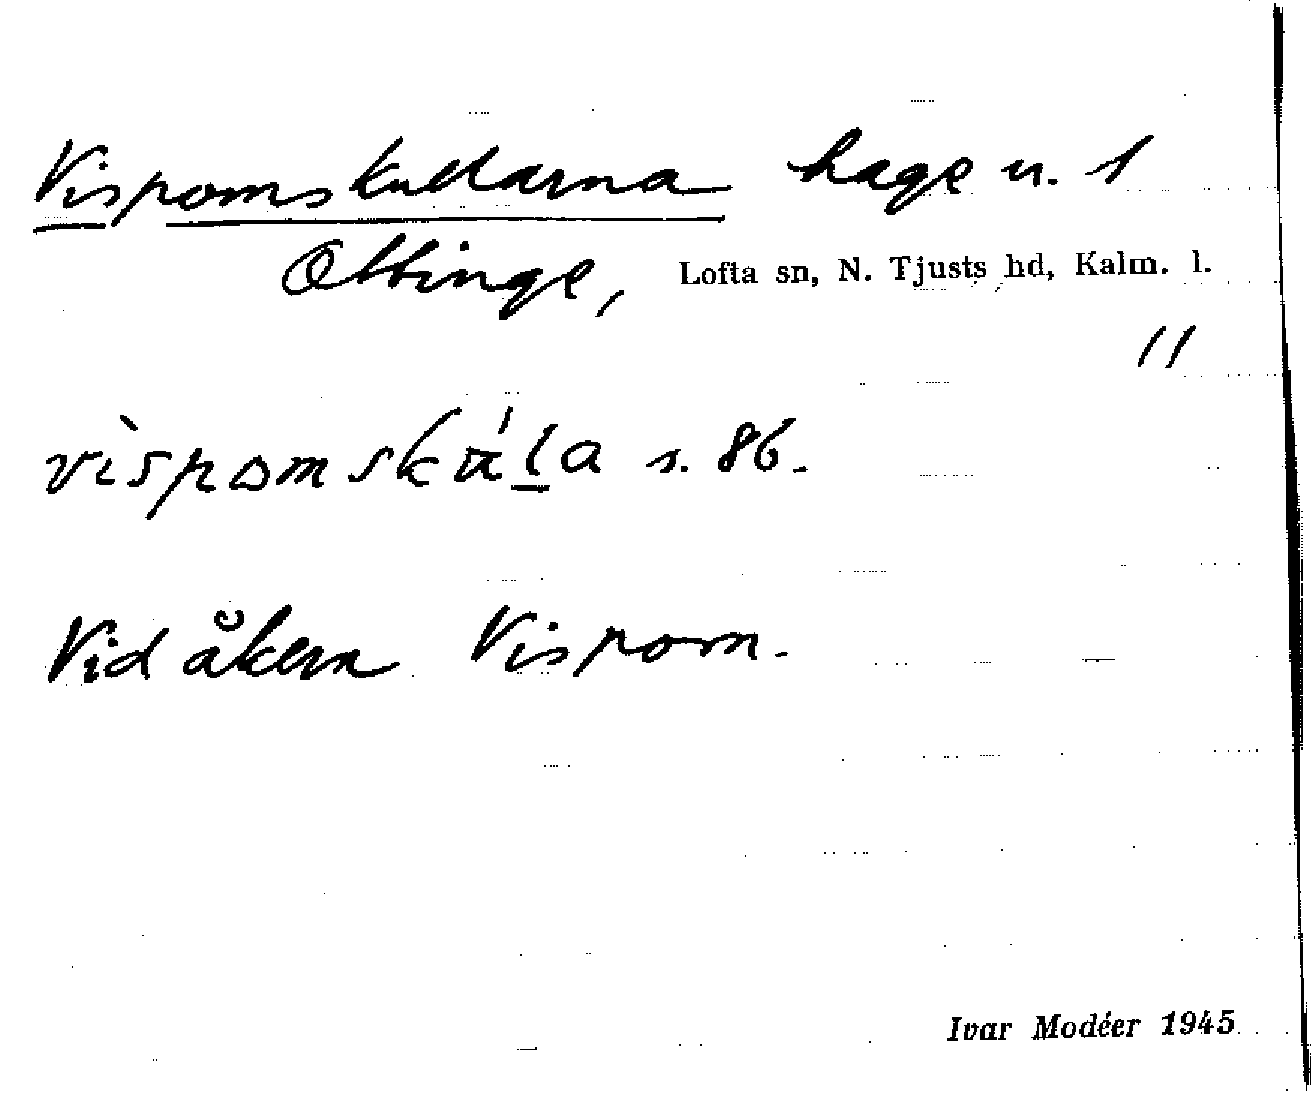 Vispomskullarna hage u. 1
Ottinge, Lofta sn, N. Tjusts hd, Kalm. l.
11
s. 86.
Vid åkern Vispom.
Ivar Modéer 1945